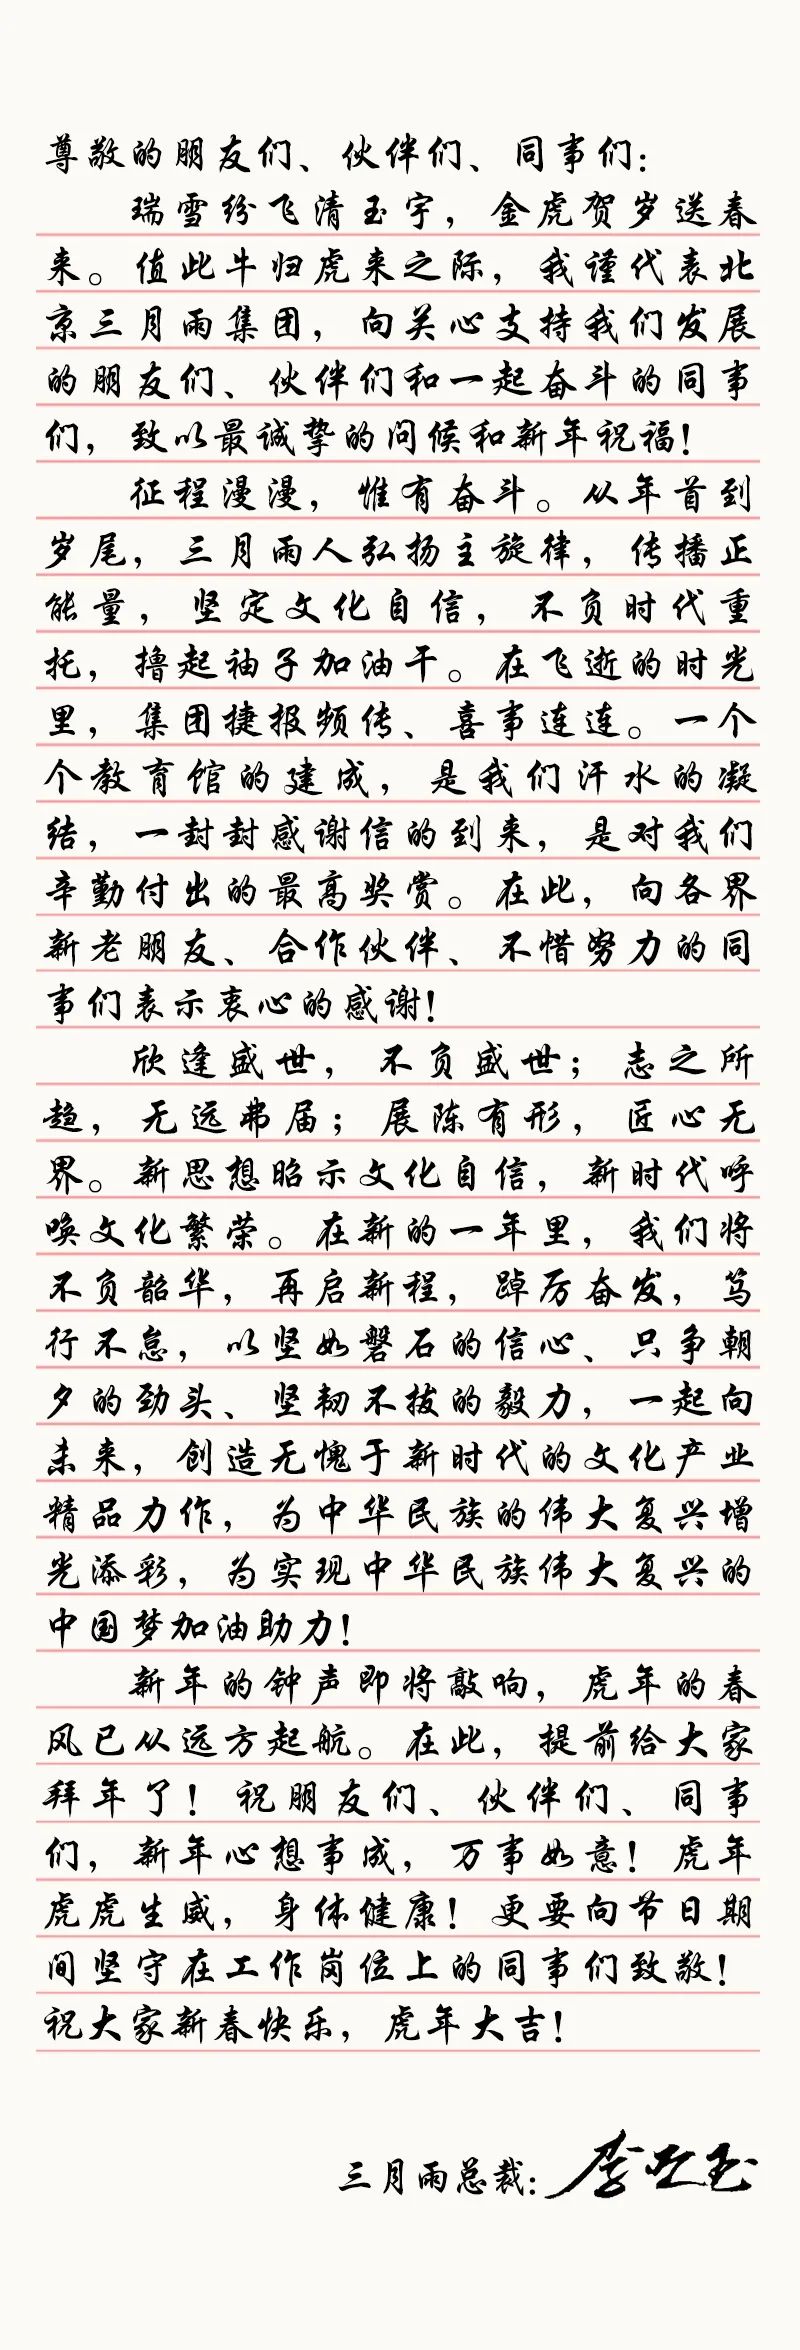 尊敬的朋友们、伙伴们、同事们：
瑞雪纷飞清玉宇，金虎贺岁送春
来。值此牛归虎来之际，我谨代表北
京三月雨集团，向关心支持我们发展
的朋友们、伙伴们和一起奋斗的同事
们，致以最诚挚的问候和新年祝福！
征程漫漫，惟有奋斗。从年首到
岁尾，三月雨人弘扬主旋律，传播正
能量，坚定文化自信，不负时代重
托，撸起袖子加油干。在飞逝的时光
里，集团捷报频传、喜事连连。一个
个教育馆的建成，是我们汗水的凝
结，一封封感谢信的到来，是对我们
辛勤付出的最高奖赏。在此，向各界
新老朋友、合作伙伴、不惜努力的同
事们表示衷心的感谢！
欣逢盛世，不负盛世；志之所
趋，无远弗届；展陈有形，匠心无
界。新思想昭示文化自信，新时代呼
唤文化繁荣。在新的一年里，我们将
不负韶华，再启新程，踔厉奋发，笃
行不怠，以坚如磐石的信心、只争朝
夕的劲头、坚韧不拔的毅力，一起向
未来，创造无愧于新时代的文化产业
精品力作，为中华民族的伟大复兴增
光添彩，为实现中华民族伟大复兴的
中国梦加油助力！
新年的钟声即将敲响，虎年的春
风已从远方起航。在此，提前给大家
拜年了！祝朋友们、伙伴们、同事
们，新年心想事成，万事如意！虎年
虎虎生威，身体健康！更要向节日期
间坚守在工作岗位上的同事们致敬！
祝大家新春快乐，虎年大吉！
三月雨总裁：李